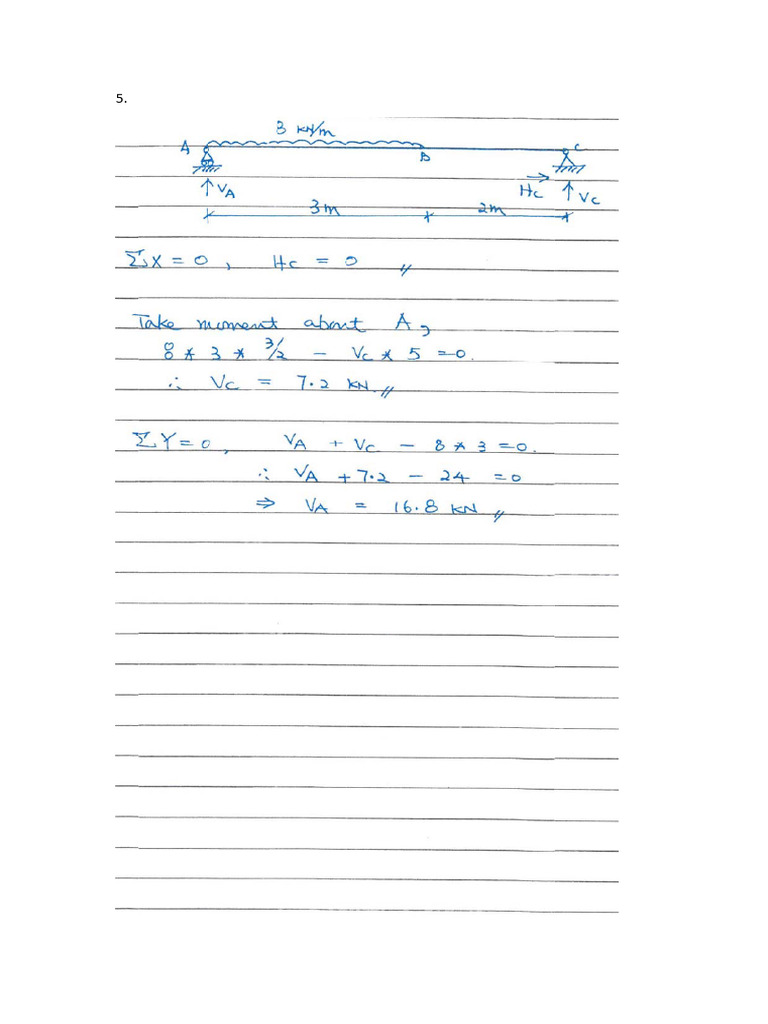 5.
8 kN/m
A B C
VA HC VC
3m 2m
ΣX = 0, HC = 0 //
Take moment about A,
8 * 3 * 3/2 - VC * 5 = 0.
∴ VC = 7.2 kN //
ΣY = 0, VA + VC - 8 * 3 = 0.
∴ VA + 7.2 - 24 = 0
⇒ VA = 16.8 kN //